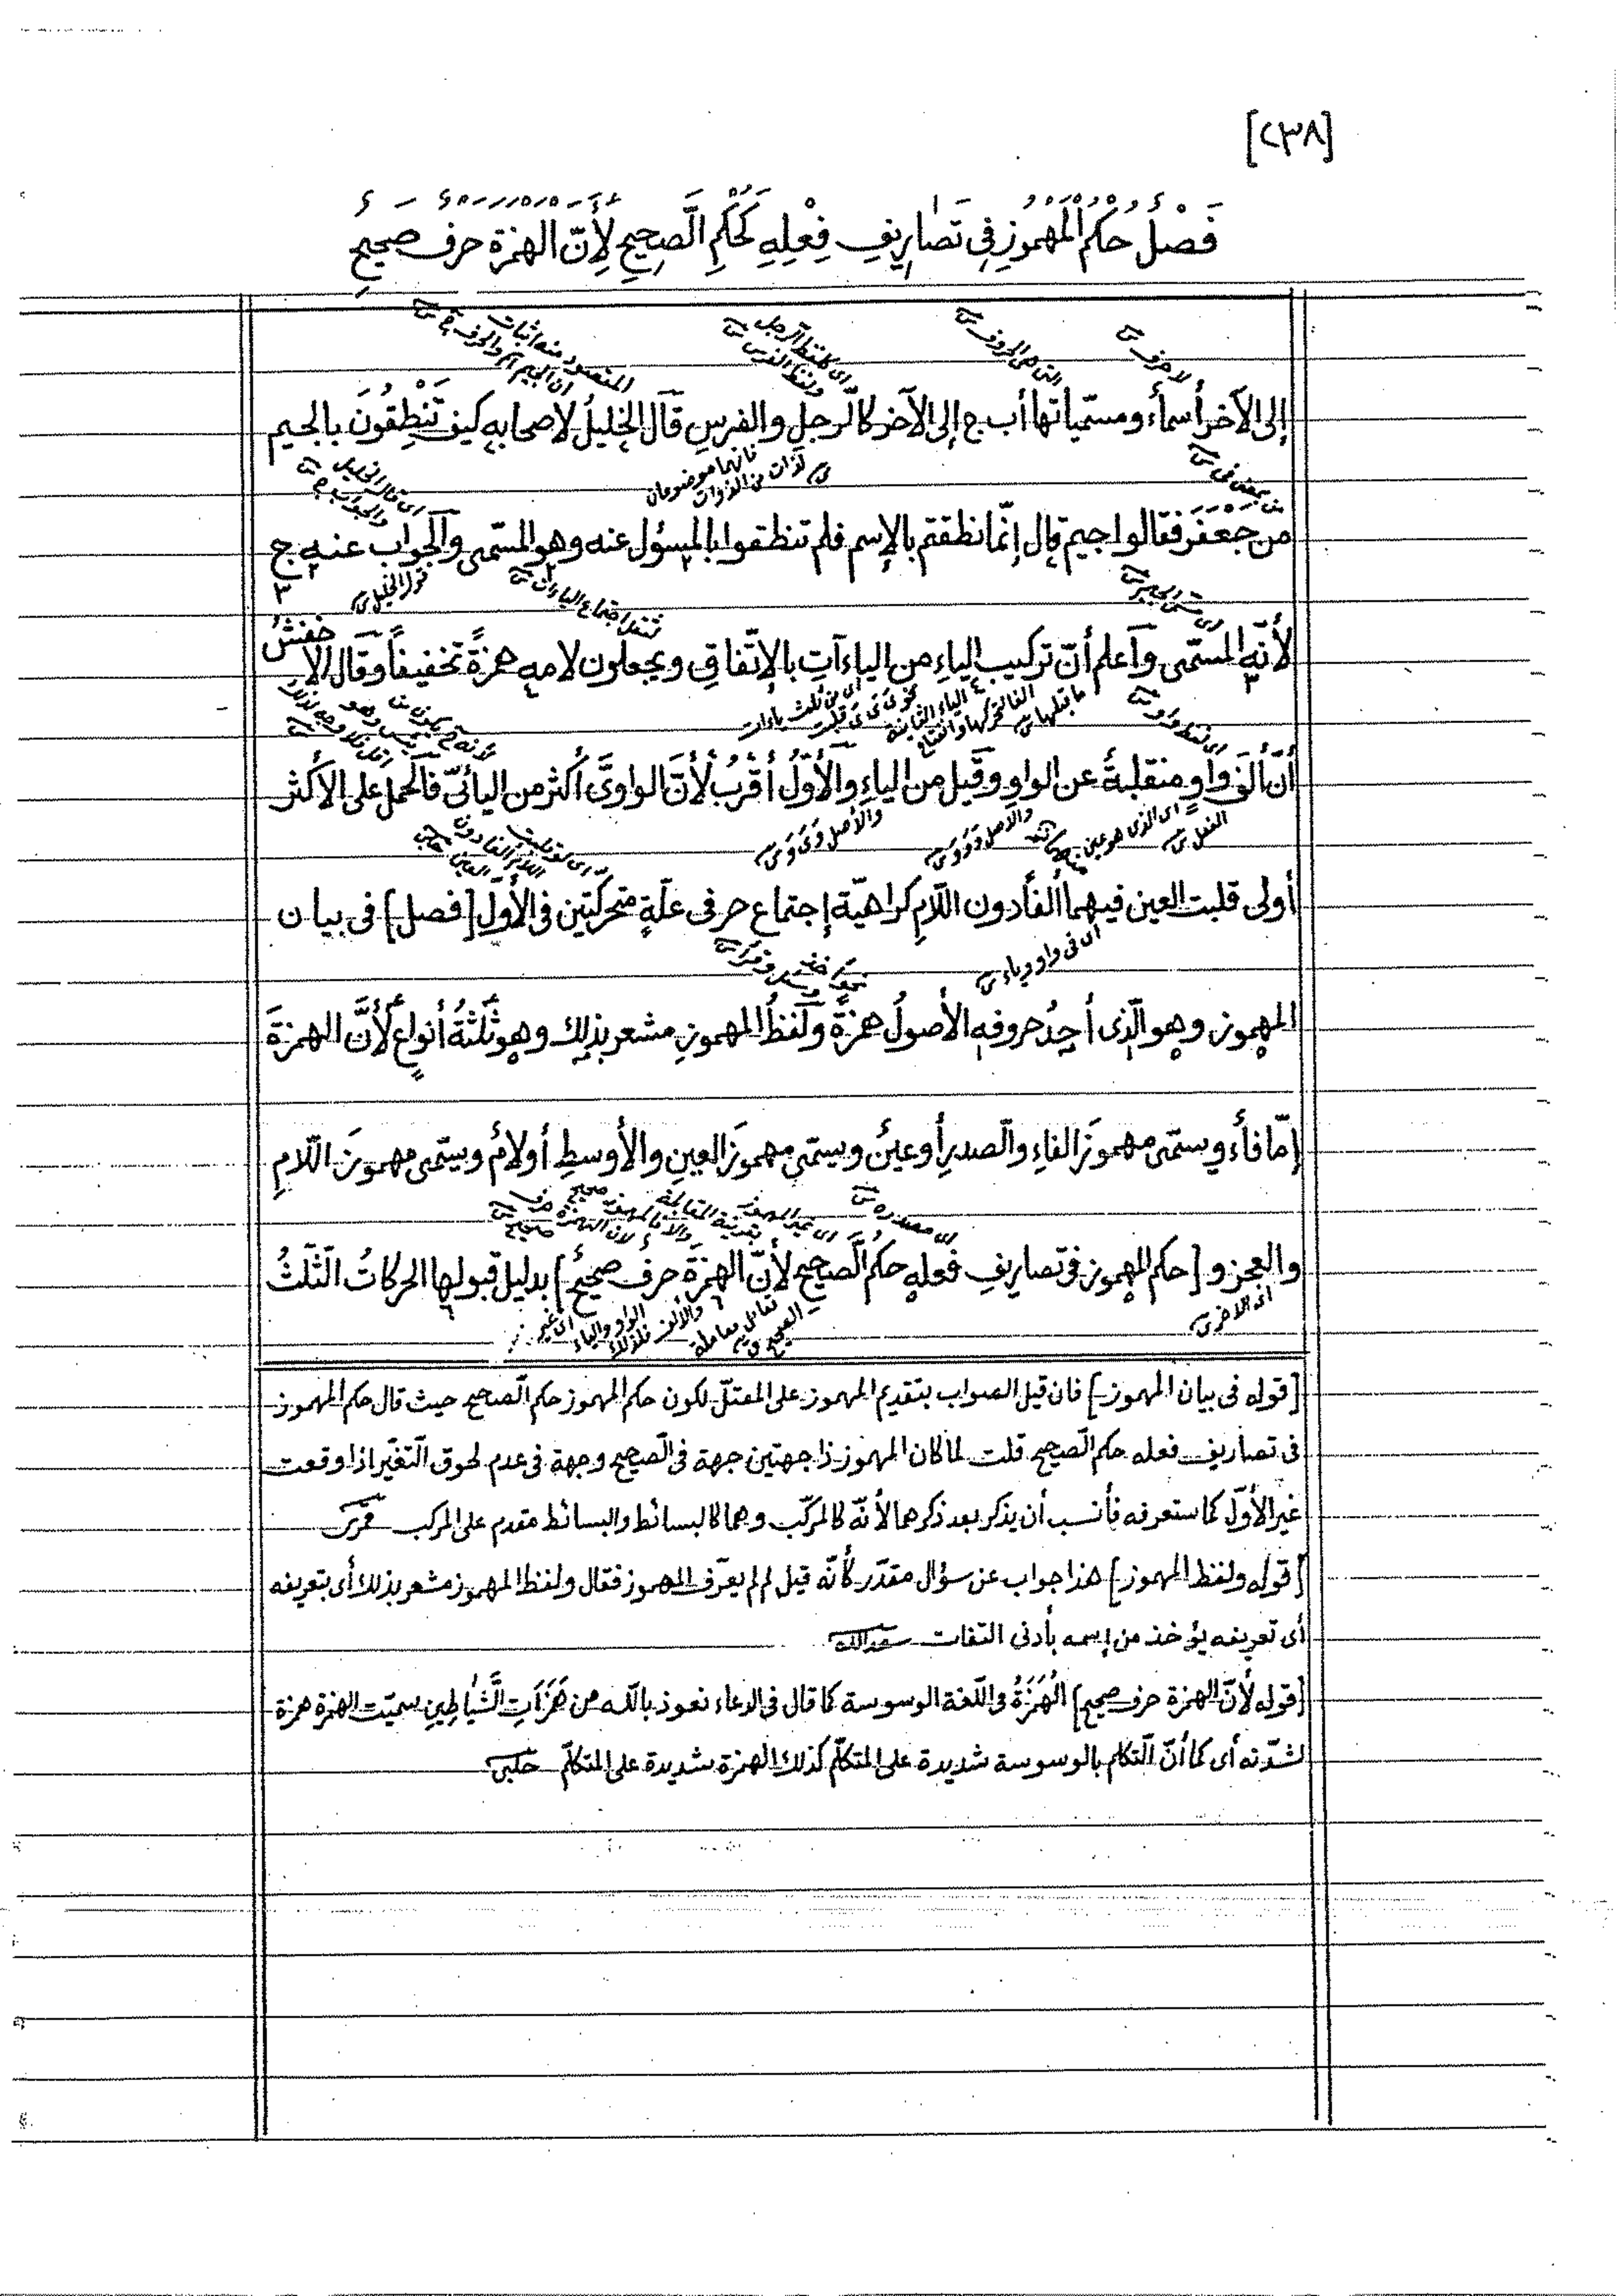 [٢٣٨]
فَصْلٌ حُكْمُ الْمَهْمُوزِ فِي تَصَارِيفِ فِعْلِهِ كَحُكْمِ الصَّحِيحِ لِأَنَّ الهمزة حرف صحيح
لا حرف
التى هى الحروف
اى كلفظ الرجل
ولفظ الفرس
المقصود منه اثبات
ان الجيم اسم والحرف ج
إلى الآخر أسماء ومسمّياتها أ ب ج إلى الآخر كالرجل والفرس قال الخليلُ لاصحابه كيف تَنْطِقُونَ بالجيم
فانهما موضوعان
لذات من الذوات
من جَعْفَرَ فقالوا جيم قال إنّما نطقتم بالإسم فلم تنطقوا بالمسؤل عنه وهو المسّمى والجواب عنه ج
قول الخليل
لثقل اجتماع الياءات
لأنّه المسّمى وٱعلم أنّ تركيب الياءِ من الياءآتِ بالإتّفاقِ ويجعلون لامه همزةً تخفيفاً وقال الاخفشُ
اى من ثلث ياءات
الياء الثانية
الفا لتحركها وانفتاح
ما قبلها
أنّ ألفَ واوٍ منقلبةٌ عن الواوِ وقيل من الياءِ والأوّلُ أقربُ لأنّ الواوىَّ أكثر من اليائىّ فالحمل على الأكثر
اى الذى هو عين
الفعل
والاصل وَوَوَ
والأصل وَىَوَ
أولى قلبت العين فيهما ألفاً دون اللّامِ كراهيّة إجتماع حرفى علّةٍ متحرّكتين فى الأوّلِ [فصل] فى بيان
اى فى واو وياء
المهموز وهو الّذى أحدُ حروفه الأصولُ همزةٌ ولفظُ المهموزِ مشعر بذلك وهو ثلثةُ أنواعٍ لأنّ الهمزةَ
إمّا فاءٌ ويسمّى مهموزَ الفاءِ والصدرِ أو عينٌ ويسمّى مهموزَ العينِ والأوسطِ أو لامٌ ويسمّى مهموزَ اللّامِ
اى مصدره
والعجز و [حكم المهموز فى تصاريفِ فعله حكمُ الصّحيحِ لأنّ الهمزةَ حرفٌ صحيحٌ] بدليل قبولها الحركاتُ الثّلثُ
اى الاخر
[قوله فى بيان المهموز] فان قيل الصواب بتقديم المهموز على المعتلّ لكون حكم المهموز حكم الصّحيح حيث قال حكم المهموز
فى تصاريف فعله حكم الصّحيح قلت لما كان المهموز ذا جهتين جهة فى الصّحيح وجهة فى عدم لحوق التّغيّر اذا وقعت
غير الأوّل كما ستعرفه فأنسب أن يذكر بعد ذكرهما لأنّه كالمركّب وهما كالبسائط والبسائط متقدم على المركب
[قوله ولفظ المهموز] هذا جواب عن سؤال مقدّر كأنّه قيل لم لم يعرّف المهموز فقال ولفظ المهموز مشعر بذلك أى بتعريفه
أى تعريفه يؤخذ من إسمه بأدنى التفات سعدالله
[قوله لأنّ الهمزة حرف صحيح] الْهَمْزَةُ فى اللّغة الوسوسة كما قال فى الدعاء نعوذ باللّه من هَمَزَاتِ الشَّيَاطِينِ سميّت الهمزة همزة
لشدّته أى كما أنّ التّكلم بالوسوسة شديدة على المتكلّم كذلك الهمزة شديدة على المتكلّم حلبى